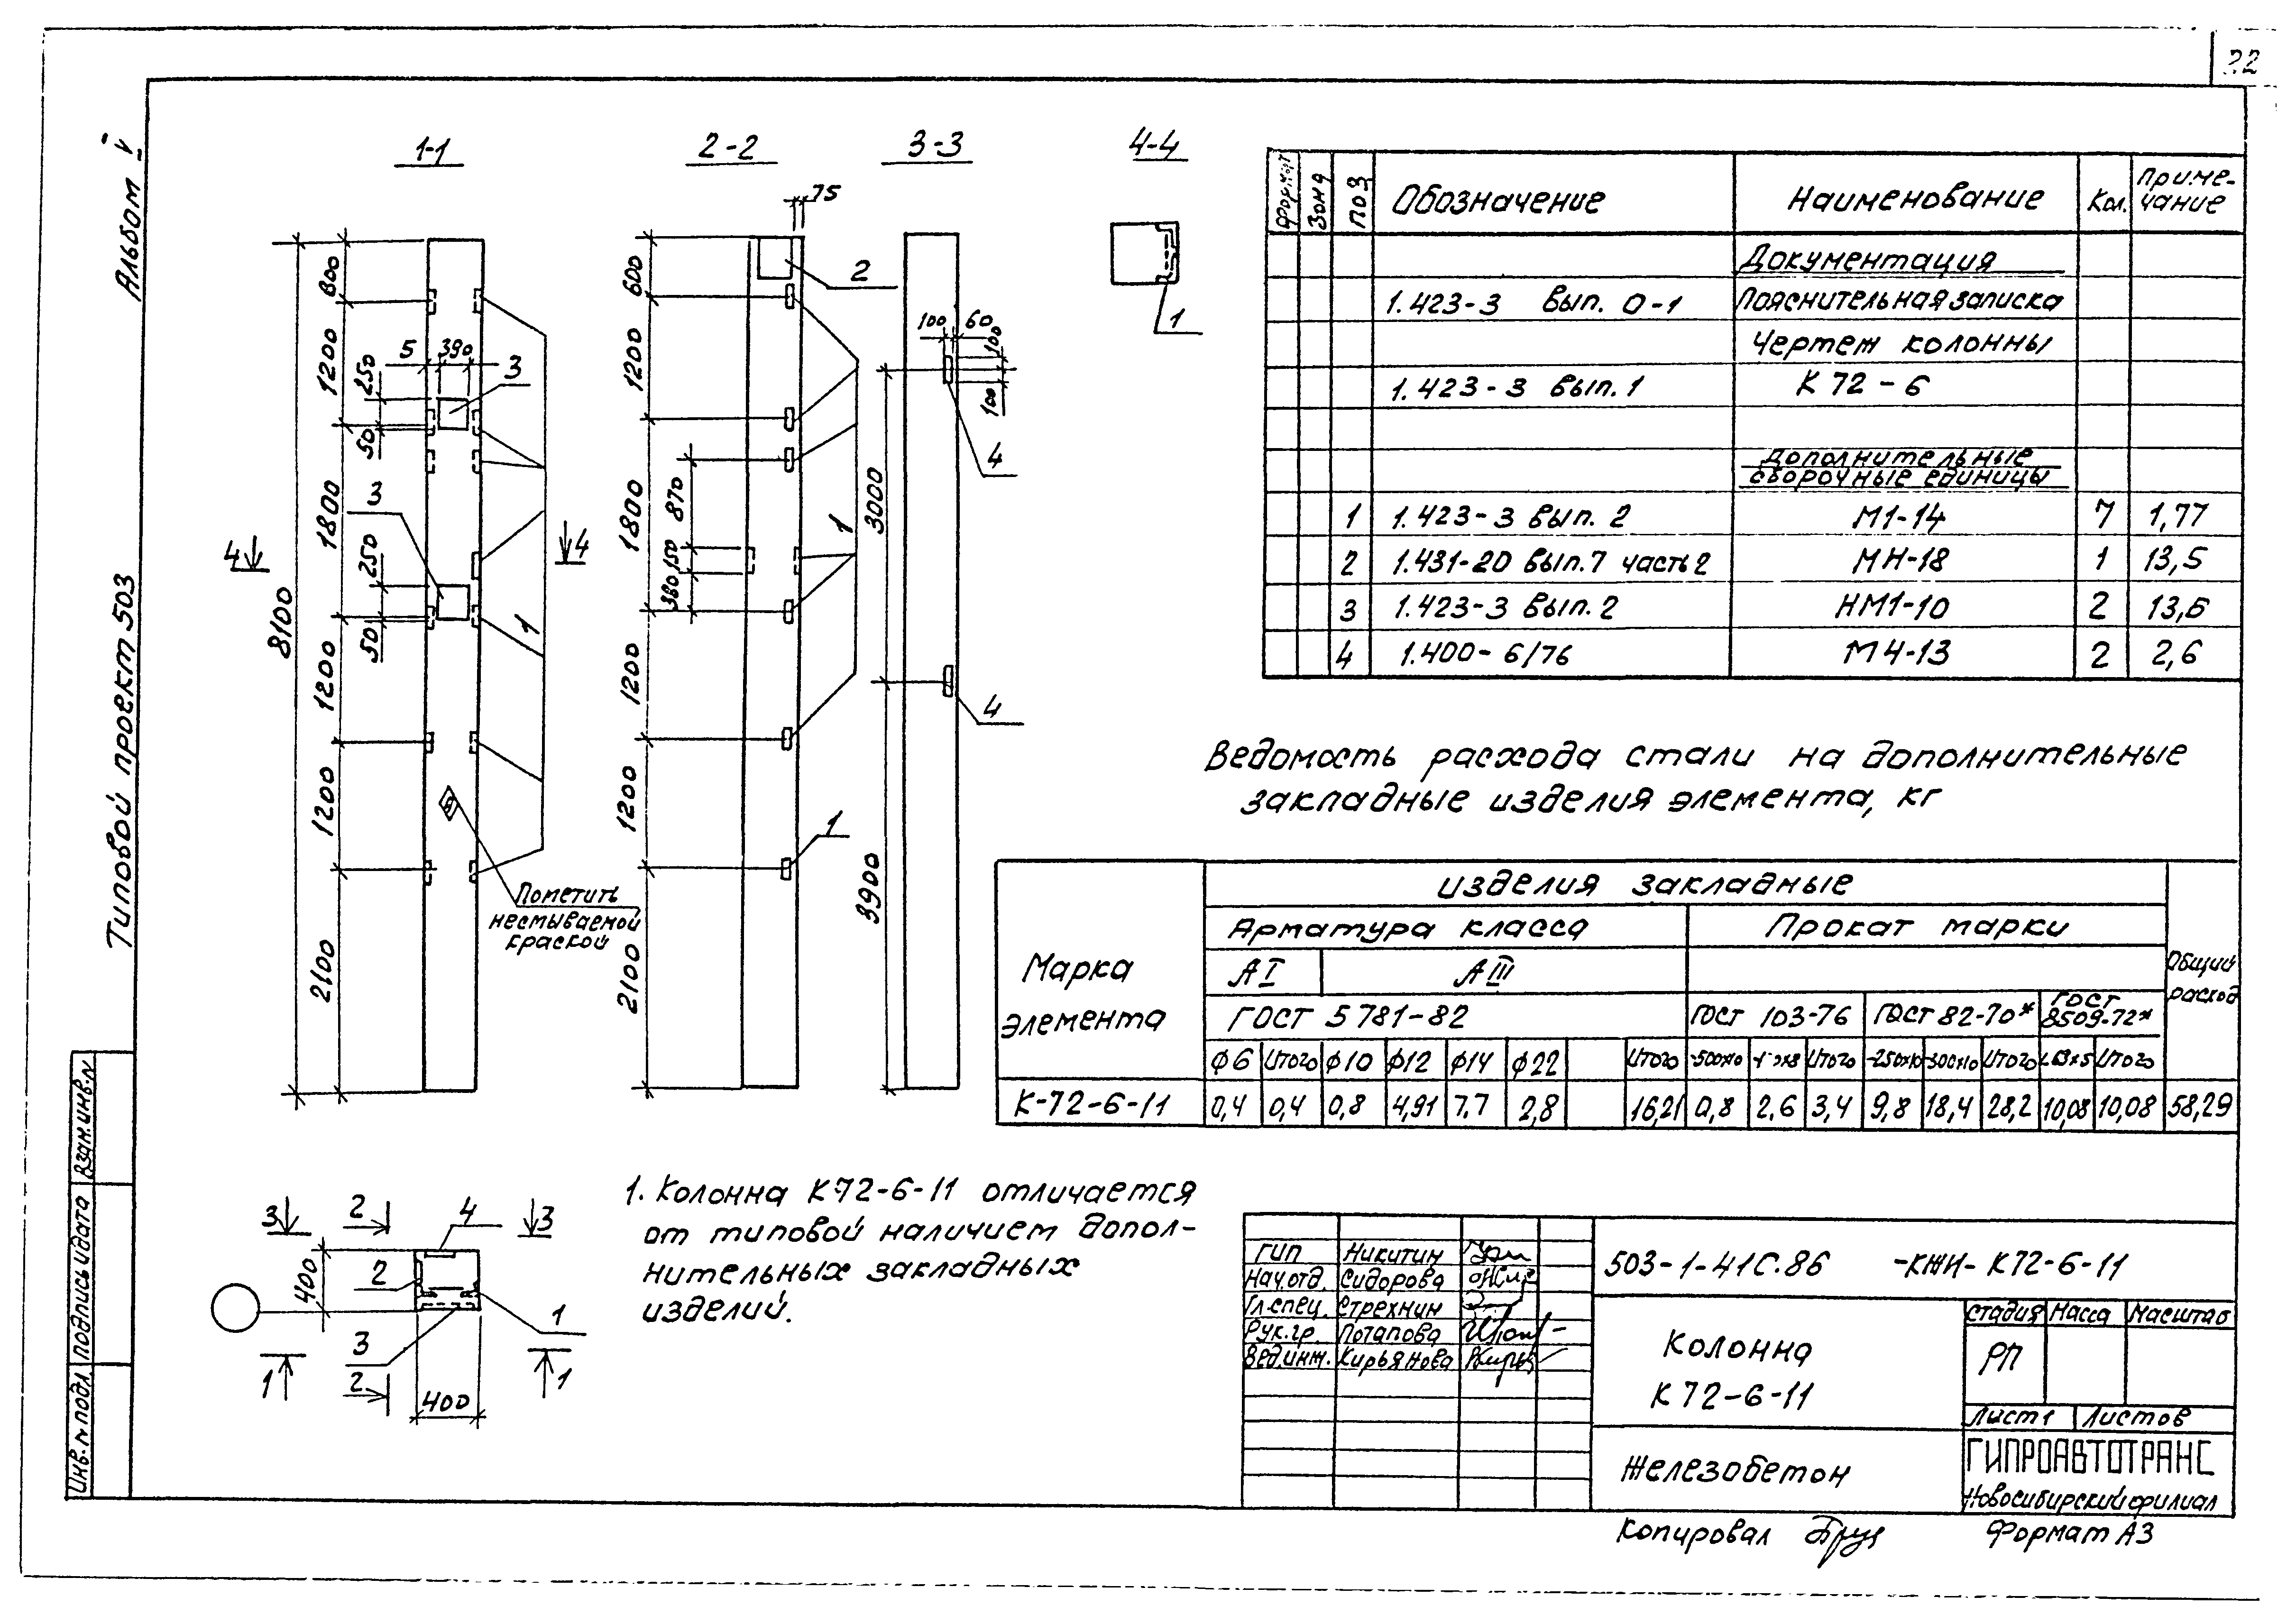 22
Альбом V
Типовой проект 503
1-1
2-2
3-3
4-4
75
600
600
1200
1200
5
390
3
250
50
2
100
60
100
100
4
1
3
1800
1800
870
150
380
3000
1
4
4
250
50
8100
1
1200
1200
4
1200
1200
1
3900
2100
2100
Пометить
несмываемой
краской
Формат
Зона
Поз
Обозначение
Наименование
Кол.
Приме-
чание
Документация
1.423-3 вып. 0-1 Пояснительная записка
Чертеж колонны
1.423-3 вып.1 К 72-6
Дополнительные
сборочные единицы
1 1.423-3 вып. 2 М1-14 7 1,77
2 1.431-20 вып.7 часть 2 МН-18 1 13,5
3 1.423-3 вып. 2 НМ1-10 2 13,6
4 1.400-6/76 М4-13 2 2,6
Ведомость расхода стали на дополнительные
закладные изделия элемента, кг
Марка
элемента
изделия закладные
Общий
расход
Арматура класса
Прокат марки
АI АIII
ГОСТ 5781-82
ГОСТ 103-76
ГОСТ 82-70*
ГОСТ
8509-72*
ф6 Итого ф10 ф12 ф14 ф22 Итого -500х10 Итого -250х10 -300х10 Итого L63х5 Итого
К-72-6-11 0,4 0,4 0,8 4,91 7,7 2,8 16,21 0,8 2,6 3,4 9,8 18,4 28,2 10,08 10,08 58,29
1. Колонна К72-6-11 отличается
от типовой наличием допол-
нительных закладных
изделий.
3 2 4 3
400
2
1
3
1 2 1
400
Взам.инв.N
Подпись и дата
Инв.N подл
ГИП Никитин
Нач.отд. Сидорова
Гл.спец. Стрехнин
Рук.гр. Потапова
Вед.инж. Кирьянова
503-1-41С.86 -КЖИ- К72-6-11
Колонна
К 72-6-11
Стадия Масса Масштаб
РП
Лист 1 Листов
Железобетон
ГИПРОАВТОТРАНС
Новосибирский филиал
Копировал
Формат А3